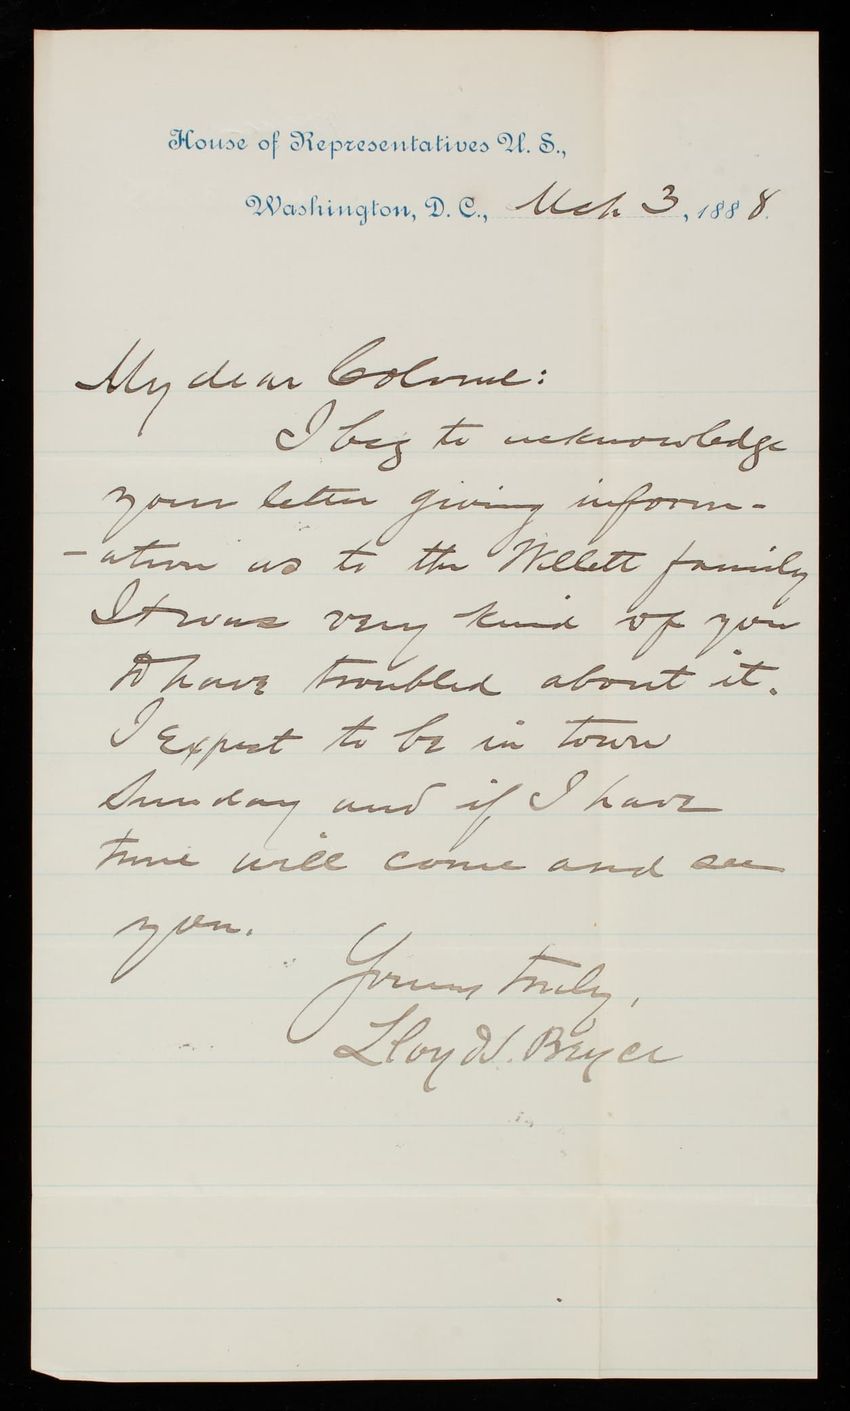 House of Representatives U. S.,
Washington, D. C., Mch 3, 1888.
My dear Colonel:
I beg to acknowledge
your letter giving inform-
-ation as to the Willett family
It was very kind of you
to have troubled about it.
I Expect to be in town
Sunday and if I have
time will come and see
you.
Yours truly,
Lloyd S. Bryce